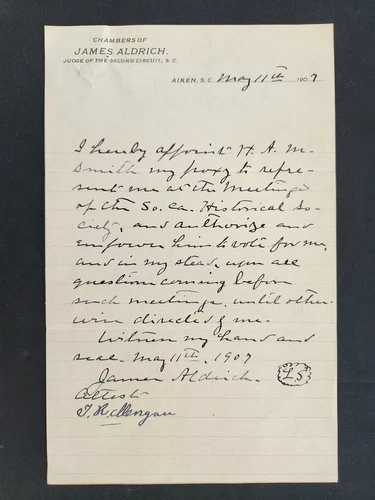 CHAMBERS OF
JAMES ALDRICH.
JUDGE OF THE SECOND CIRCUIT, S.C.
AIKEN, S.C. May 11th 1907
I hereby appoint H. A. M.
Smith my proxy to repre-
sent me at the meetings
of the So. Ca. Historical So-
ciety, and authorize and
empower him to vote for me,
and in my stead, upon all
questions coming before
such meetings, until other-
wise directed by me.
Witness my hand and
seal May 11th, 1907
James Aldrich. L.S.
Attest